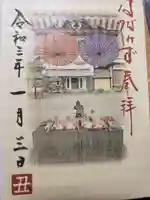 奉拝
令和三年一月三日
丑